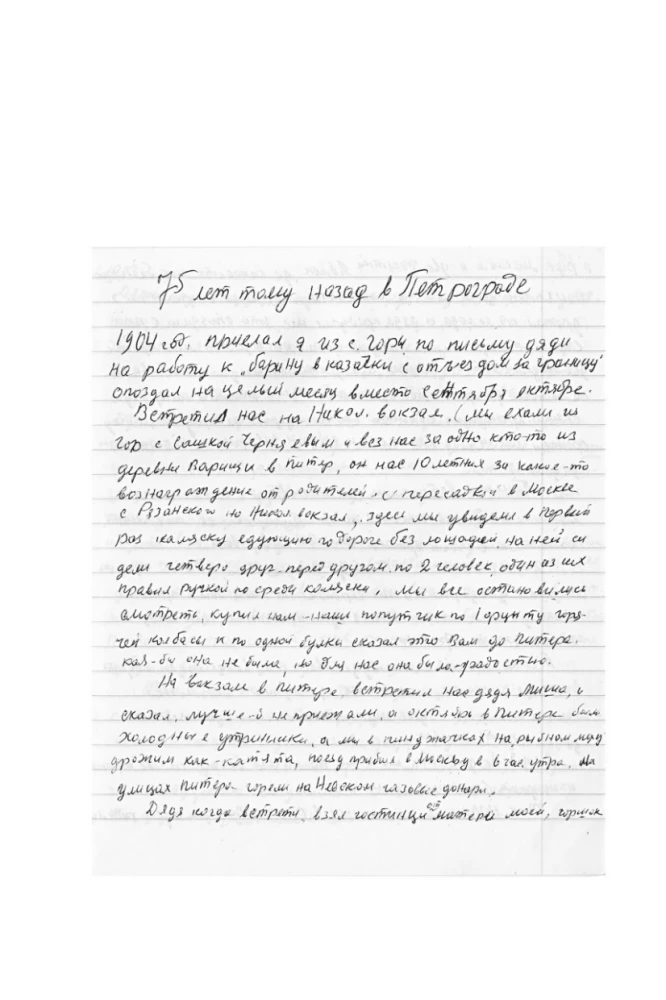 75 лет тому назад в Петрограде
1904 год, приехал я из с. Горы по письму дяди
на работу к „барину в казачки с отъездом за границу"
опоздал на целый месяц вместо сентября октябре.
Встретил нас на Никол. вокзал. (мы ехали из
гор с Сашкой Черняевым и вез нас за одно кто-то из
деревни Варищи в Питер, он нас 10 летних за какое-то
вознаграждение от родителей. с пересадкой в Москве
с Рязанского на Никол вокзал, здесь мы увидели в первый
раз коляску едующию по дороге без лошадей, на ней си
дели четверо друг-перед другом по 2 человек, один из них
правил ручкой по среди коляски, мы все остановились
смотреть, купил нам-наш попутчик по 1 фунту горя-
чей колбасы и по одной булки сказал это вам до Питера.
кая-бы она не была, но для нас она была-радостью.
На вокзале в Питере, встретил нас дядя Миша, и
сказал, лучше-б не приезжали, а октябрь в Питере были
холодные утринники, а мы в пинджачках на рыбном меху
дрожим как-катята, поезд прибыл в Москву в 6 час. утра. На
улицах Питера-горели на Невском газовые фонари.
Дядя когда встрети, взял гостинцы от матери моей, горшок